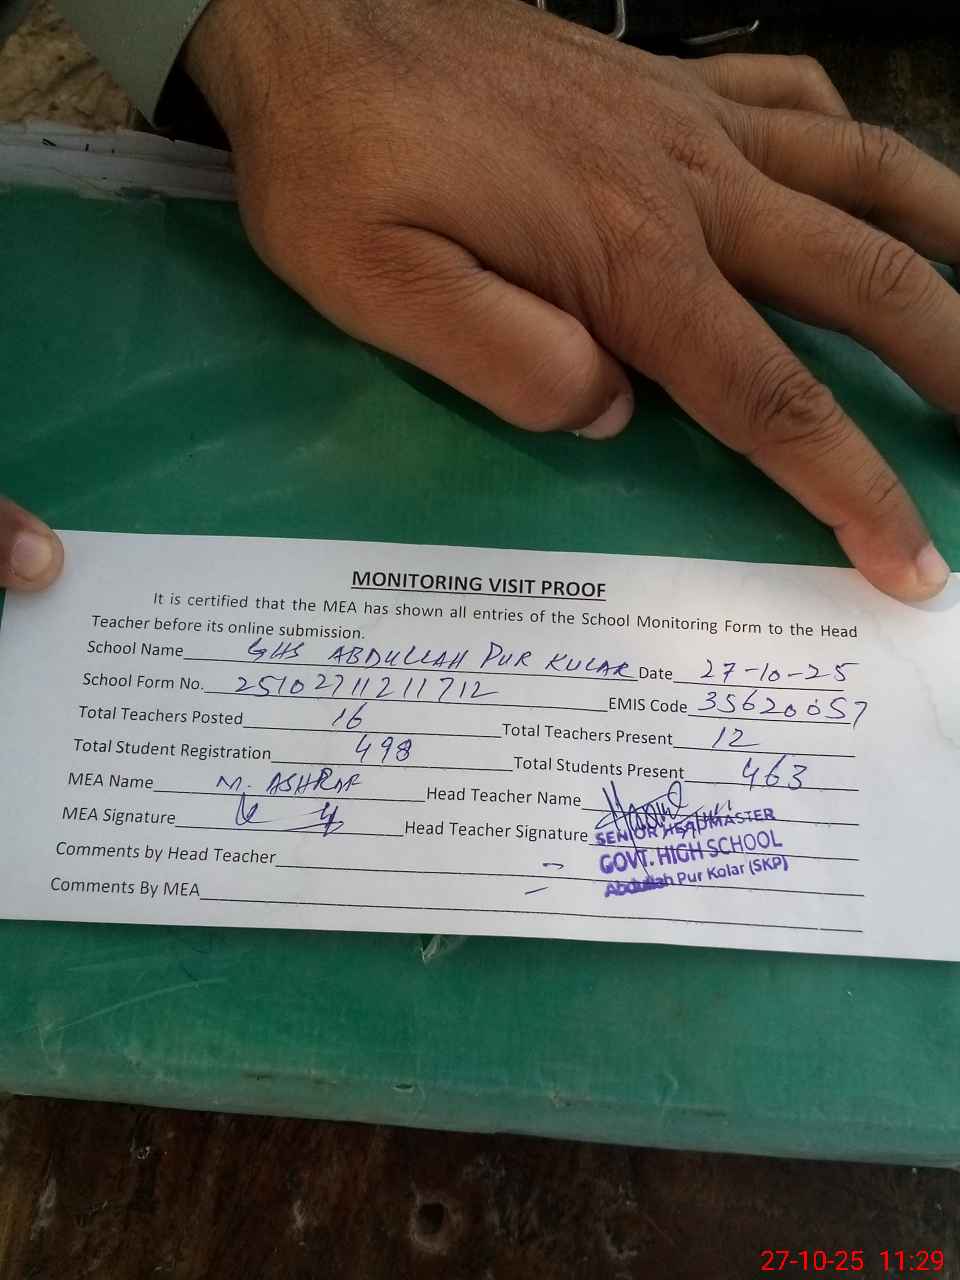 MONITORING VISIT PROOF
It is certified that the MEA has shown all entries of the School Monitoring Form to the Head
Teacher before its online submission.
School Name GHS ABDULLAH PUR KULAR Date 27-10-25
School Form No. 2510271121 1712 EMIS Code 35620057
Total Teachers Posted 16 Total Teachers Present 12
Total Student Registration 498 Total Students Present 463
MEA Name M. ASHRAF Head Teacher Name
MEA Signature Head Teacher Signature
SENIOR HEADMASTER
GOVT. HIGH SCHOOL
Abdullah Pur Kolar (SKP)
Comments by Head Teacher
Comments By MEA
27-10-25 11:29